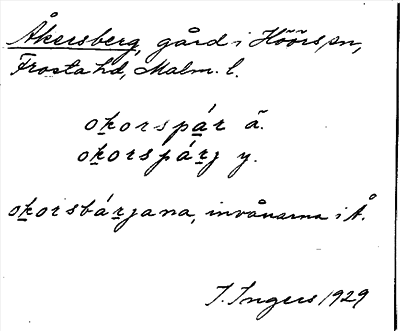 Åkersberg, gård i Höörs sn,
Frosta hd, Malm. l.
okorspár ä.
okorspárj y.
okorsbárjana, invånarna i Å.
I. Ingers 1929